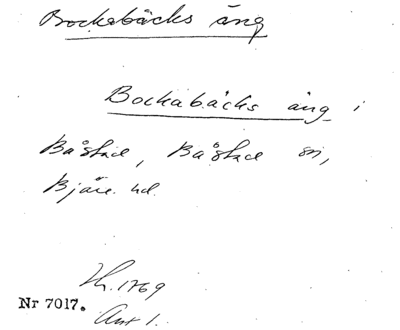 Bockabäcks äng
Bockabäcks äng i
Båstad, Båstad sn,
Bjäre hd.
Lh. 1769
Nr 7017.
Akt 1.